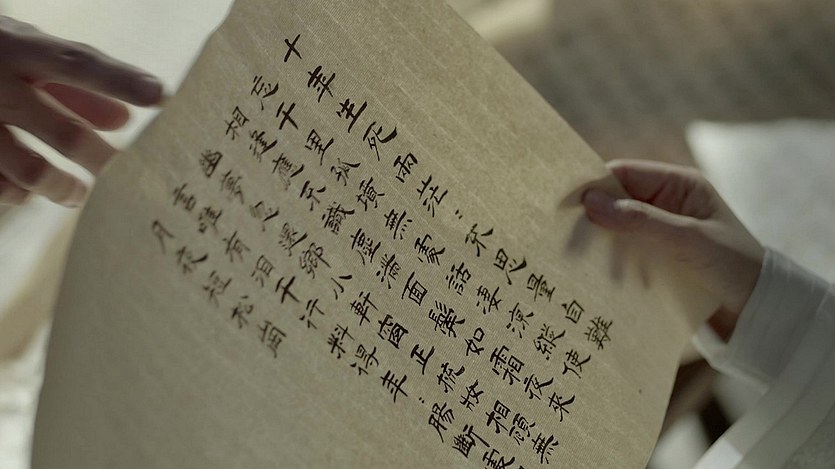 十年生死兩茫：不思量自難
忘千里孤墳無處話淒涼縱使
相逢應不識塵滿面鬢如霜夜來
幽夢忽還鄉小軒窗正梳妝相顧無
言唯有泪千行料得年：腸斷處
月夜短松崗